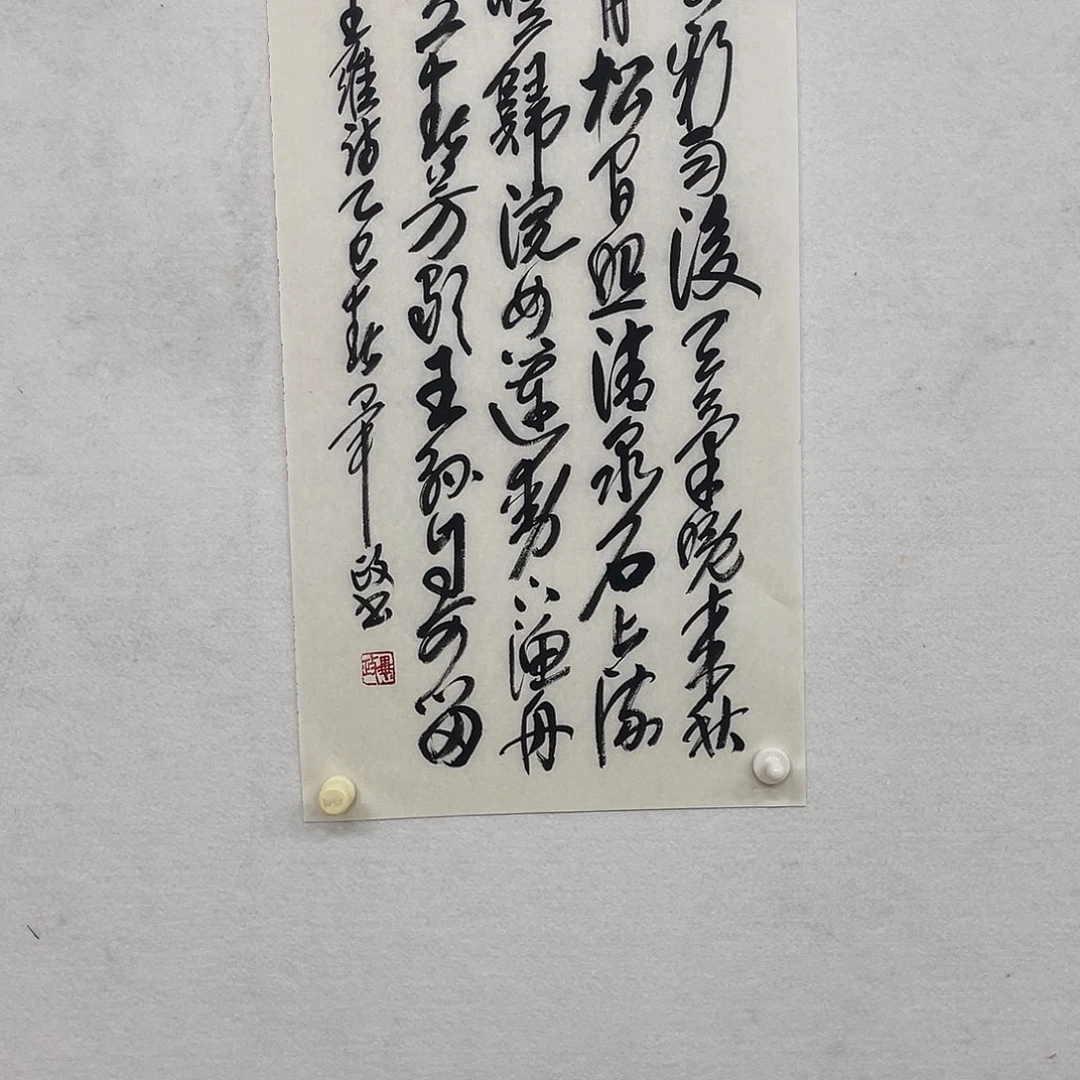 新雨後天氣晚来秋
月松間照清泉石上流
喧歸浣女蓮動下漁舟
意春芳歇王孫自可留
王維詩乙巳春畢政书